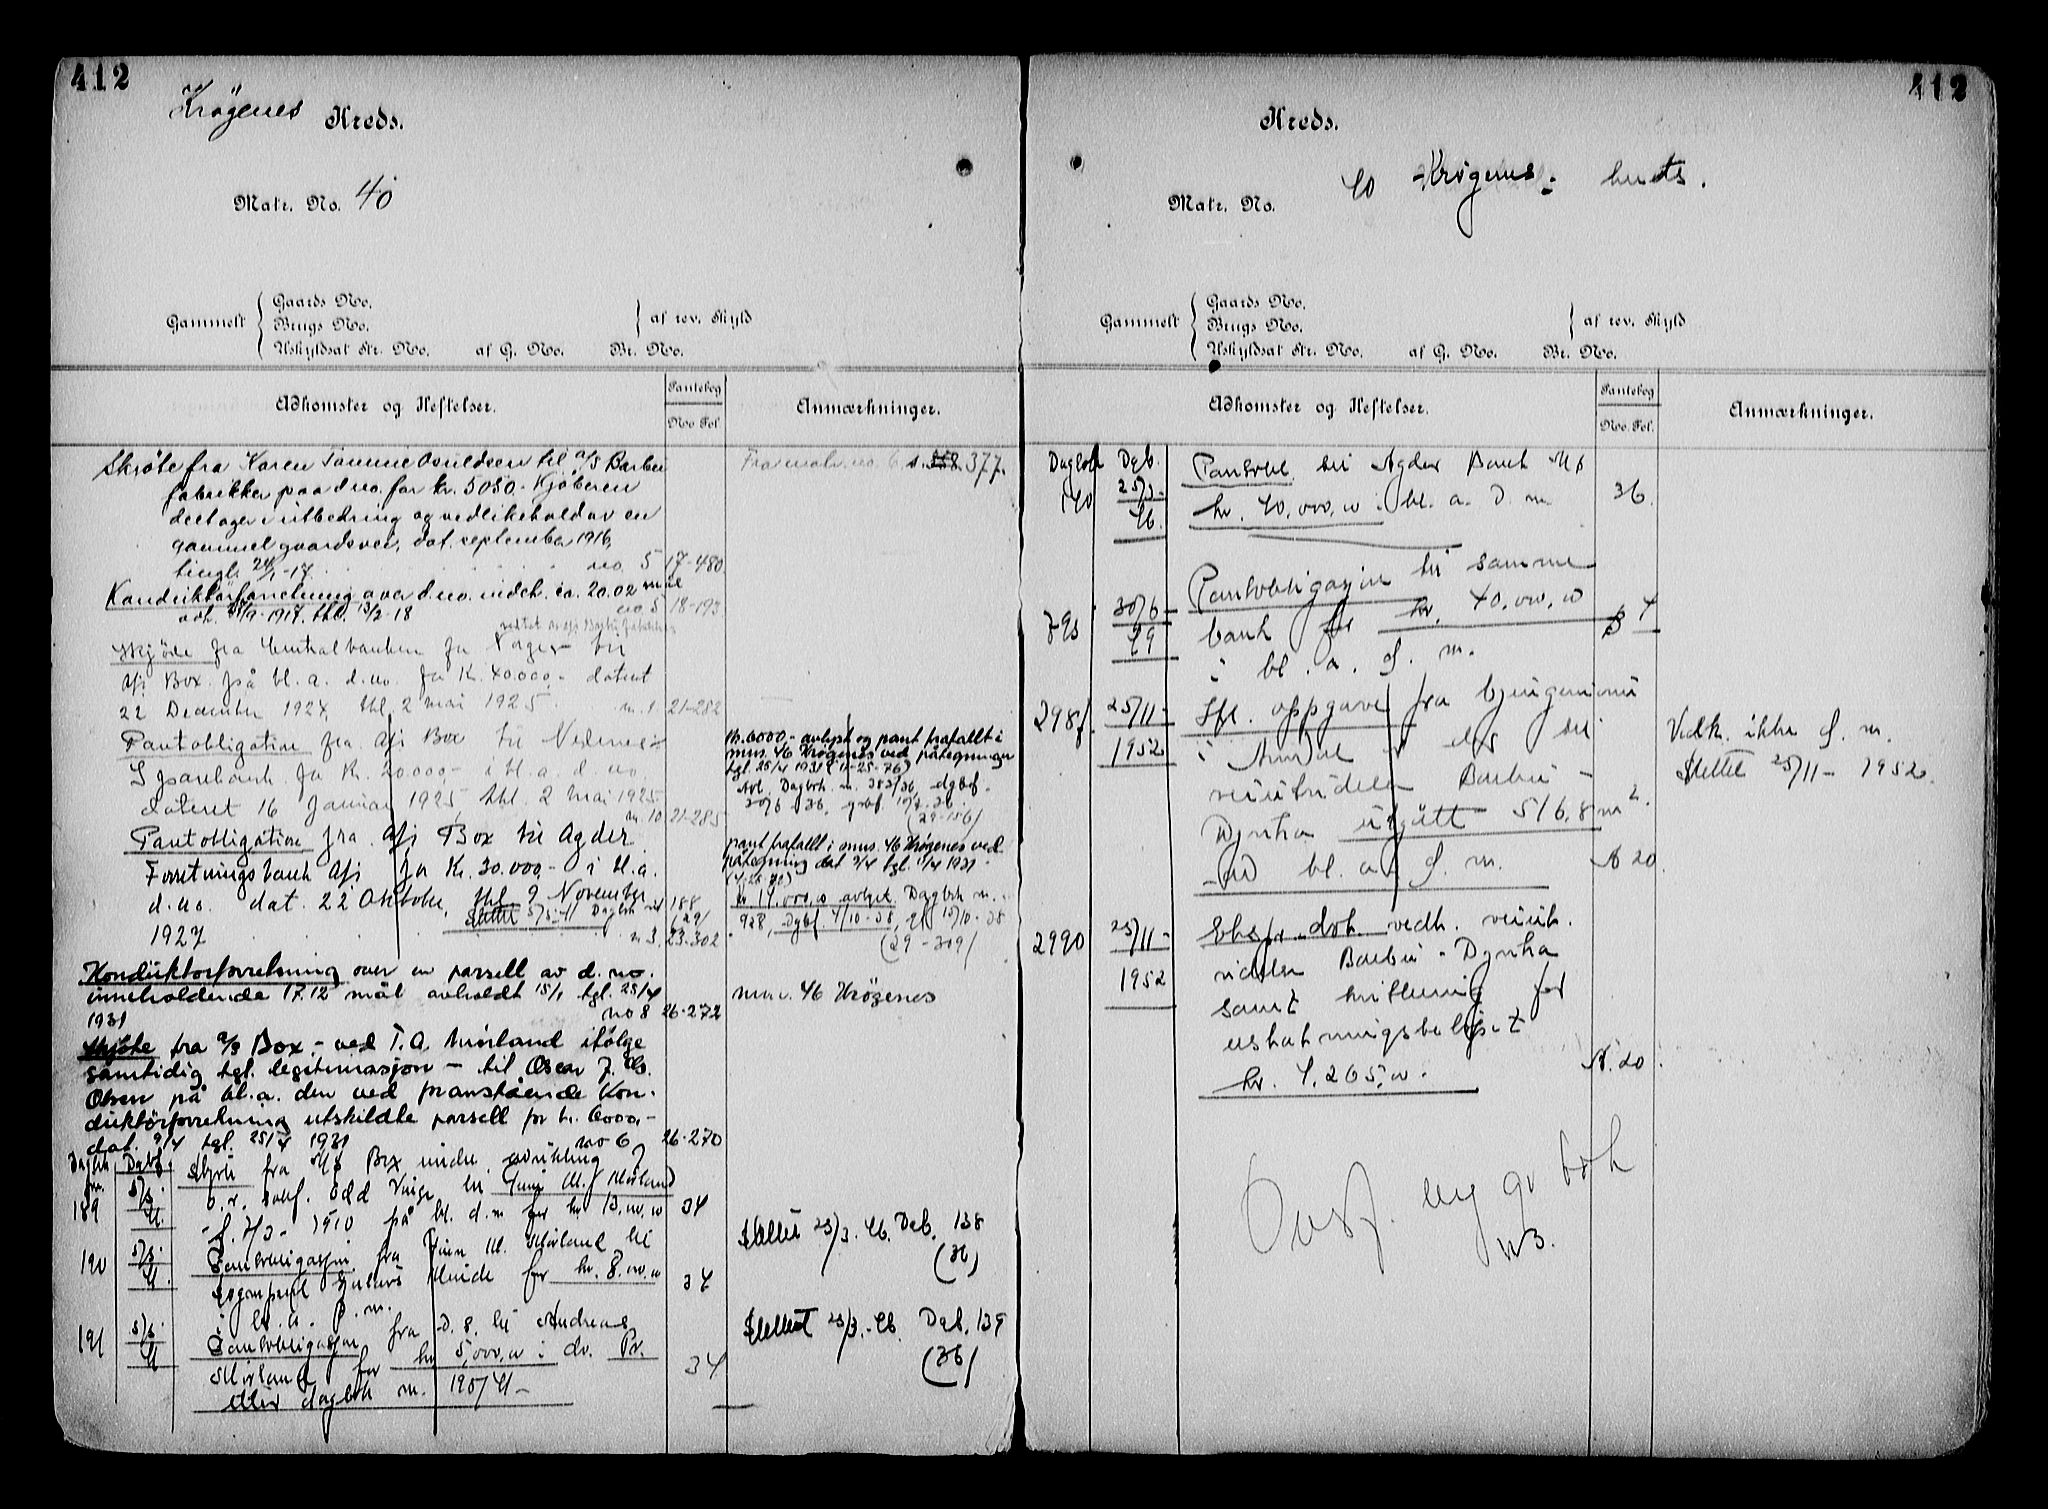 412
Krögenes Kreds.
Matr. No. 40
Gammelt { Gaards No.
Brugs No. } af rev. Skyld
Uskyldsat Str. No. af G. No. Br. No.
Adkomster og Heftelser.
Pantebog
No. Fol.
Anmærkninger.
Skjöte fra Karen Tomine Osuldsen til a/s Barbu
fabrikker paa d no. for kr. 5050.- Kjøberen
deltager i utbedring og vedlikehold av en
gammel gaardsvei, dat. september 1916,
tingl. 24/1-17. no. 5 17-480
Fra matr. no. 6. s. 377.
Konduktörforretning over d.no. indeh. ca. 20.02 maal
avh. 1917. thl. 13/2-18 no 5 18-193
Skjöde fra Centralbanken for Norge til
A/s Box på bl. a. d. no. for Kr. 40.000,- datert
22 December 1924, thl. 2 mai 1925. n. 1 21-282
Pantobligation fra A/s Box til Nedenes
Sparebank for Kr. 20.000,- i bl. a. d. no.
dateret 16 Januar 1925, thl. 2 mai 1925
n. 10 21-285
Kr. 6000,- avlyst og pant frafallt i
mnr. 46 Krögenes ved påtegninger
tgl. 25/4 1931 (11-25-76)
Avl. Dagbok n. 383/36, dgbf.
30/6-36, grbf. 10/7-36.
(29-156)
Pantobligation fra A/s Box til Agder
Forretningsbank A/s for Kr. 30.000,- i bl. a.
d. no. dat. 22 Oktober, thl. 9 November
Slettet 5/5-41 Dagbok nr 188
1927 n 3. 23-302
pant frafallt i mnr. 46 Krögenes ved
påtegning dat 9/4 tgl. 1931
kr 14.000,00 avlyst. Dagbok n.
928, Dgbf. 4/10-38, 15/10-38
(29-309)
Konduktorforretning over en parsell av d. no.
inneholdende 17.12 mål avholdt 15/1 tgl. 25/4
1931 no 8 26-272
mnr. 46 Krögenes
Skjöte fra a/s Box - ved T. A. Mörland ifölge
samtidig tgl. legitimasjon - til Oscar J.
Olsen på bl. a. den ved franstående Kon-
duktörforretning utskildte parsell for kr. 6000,-
dat. 9/4 tgl. 25/4 1931 no 6 26-270
Dagbok nr. Dgbf.
189 5/5- 41 Skjöte fra A/S Box under avvikling
o. r. sakf. Odd Vinje til M. Mörland
f. 7/3-1910 på bl. d. m for kr 13.000,00 34
190 5/5- 41 Pantobligasjon fra M. Mörland til
for kr. 8.000,00
i bl. a. d. m. 34
Slettet 25/3-46. Dgb. 138
(36)
191 5/5- 41 Pantobligasjon fra D. s. til Andreas
Mörland for kr 5.000,00 i do. Pr.
etter dagbok nr. 190/41- 34
Slettet 25/3-46. Dgb. 139
(36)
412
Kreds.
Matr. No. 40 Krøgenes
Gammelt { Gaards No.
Brugs No. } af rev. Skyld
Uskyldsat Str. No. af G. No. Br. No.
Adkomster og Heftelser.
Pantebog
No. Fol.
Anmærkninger.
Dagbok Dgb.
140 25/3- 46. Pantobl. til Agder Bank A/S
kr. 40.000,00 i bl. a. d. m. 36.
795 30/6- 49 Pantobligasjon til samme
bank for kr. 40.000,00
i bl. a. d. m.
2981 25/11- 1952 Ifl. oppgave fra byingeniøren
i Arendal er det til
veiutvidelse Barbu -
Dyvika utgått 516,8 m².
ved bl. a. d. m. A 20.
Vedk. ikke d. m.
Slettet 25/11-1952.
2990 25/11- 1952 Ekspr. dok. vedk. veiut-
videlse Barbu - Dyvika
samt kvittering for
erstatningsbeløpet
kr. 4.265,00. A. 20.
Overf. ny gr bok